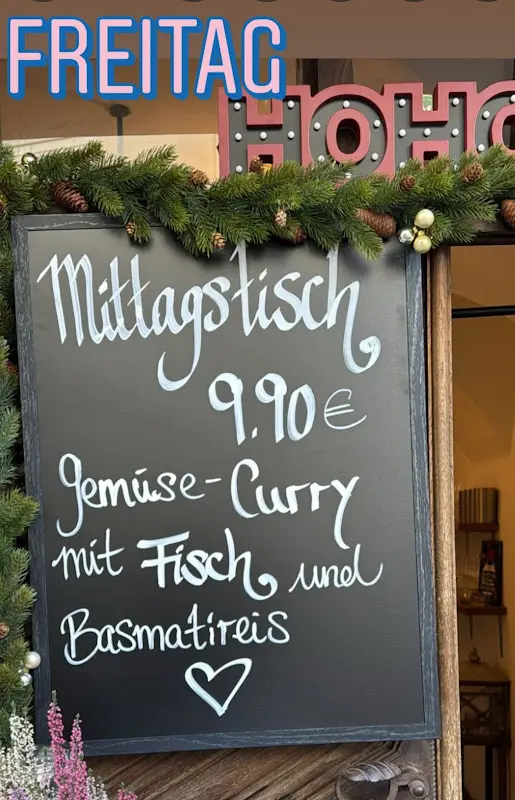 FREITAG
HOHO
Mittagstisch
9.90 €
Gemüse-Curry
mit Fisch und
Basmatireis